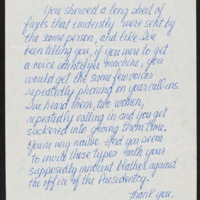 You showed a long sheet of
faxes that evidently were sent by
the same person, and like I've
been telling you, if you were to get
a voice analyzer machine, you
would get the same few voices
repeatedly phoning on your call-ins.
I've heard them, two women,
repeatedly calling in and you get
suckered into giving them time.
You're very naive. And you seem
to invite these types with your
supposedly innocent blather against
the office of the Presidency.
Thank you.